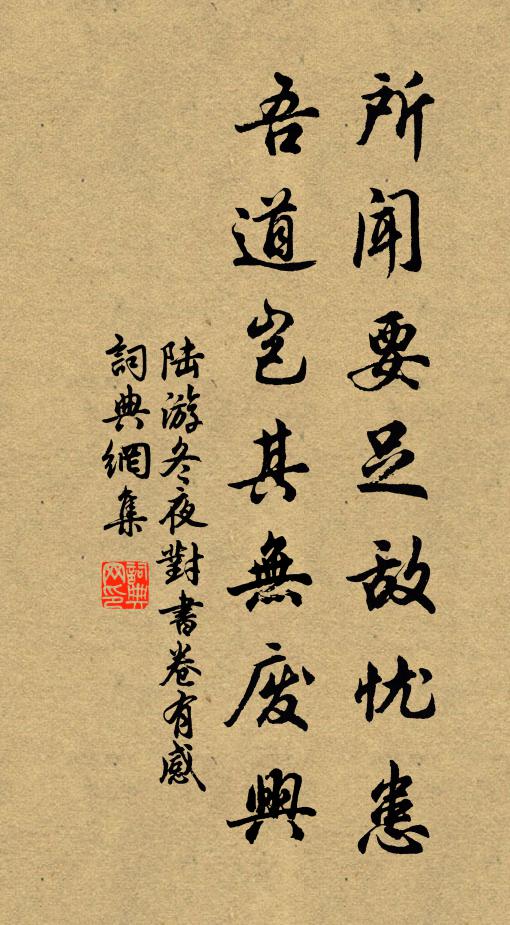 所聞要足敵忧患
吾道岂其無废興
陆游冬夜對書卷有感
詞典網集
詞典网印